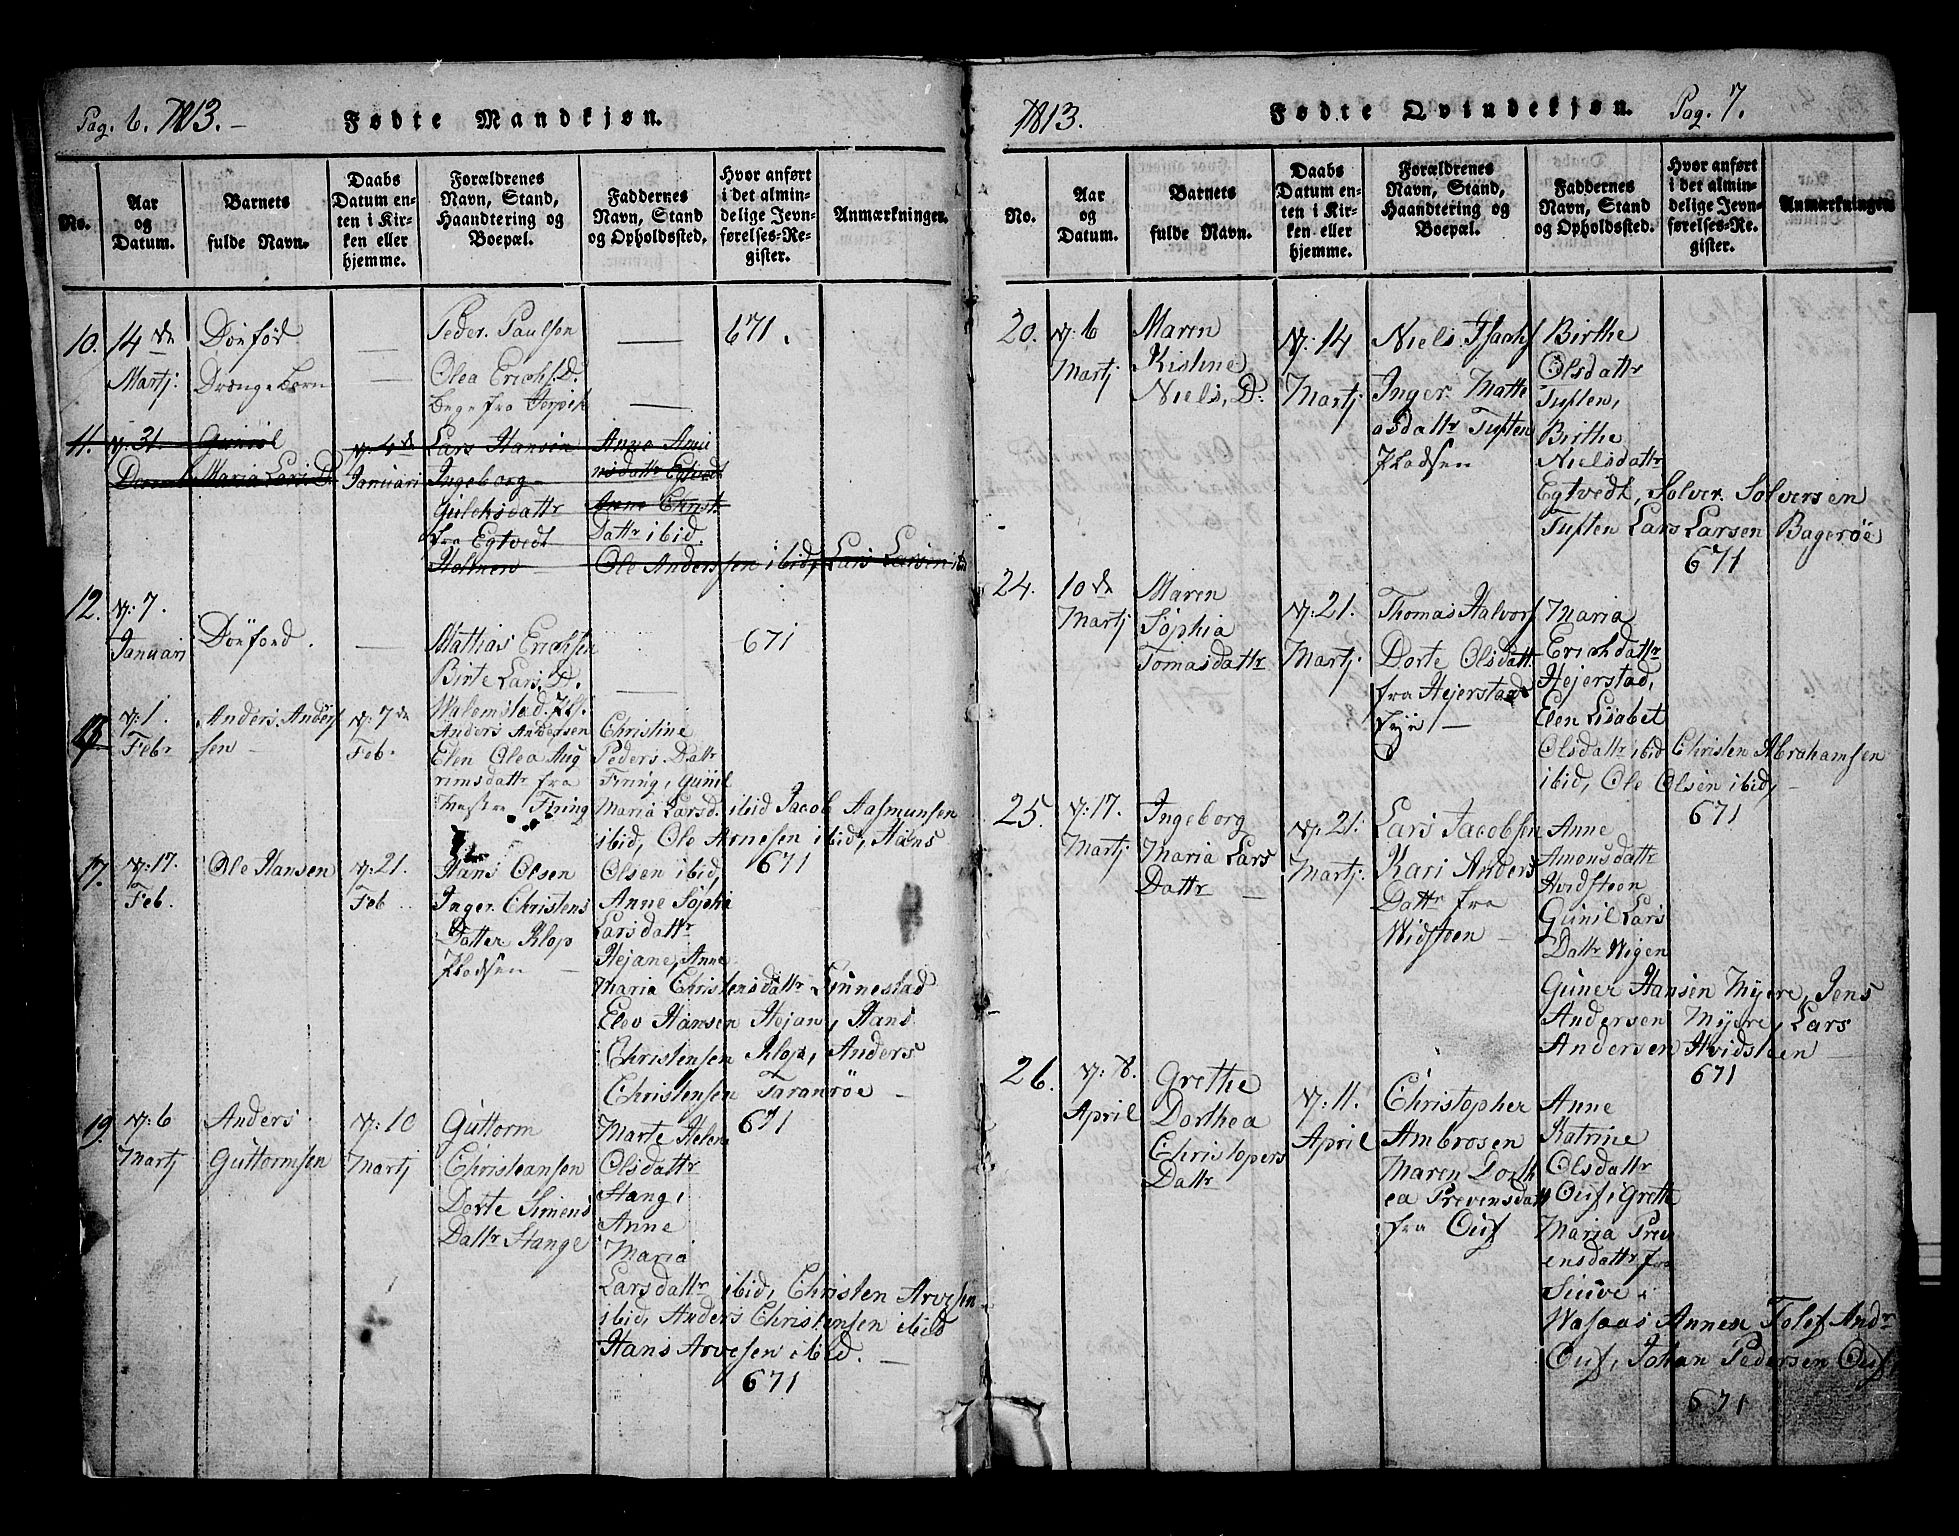 Pag. 6. 1813.
Fødte Mandkjøn.
No.
Aar og Datum.
Barnets fulde Navn.
Daabs Datum enten i Kirken eller hjemme.
Forældrenes Navn, Stand, Haandtering og Boepæl.
Faddernes Navn, Stand og Opholdssted.
Hvor anført i det almindelige Jevnførelses-Register.
Anmærkninger.
10. 14 de Martj:
Dönfød
Drænge Barn
Peder Paulsen
Olea Erichs. D.
671.
11. N: 31.
Gunöl
Maria Lars. D.
N: 4 de
Januari
Lars Hansen
Ingeborg
Gulchsdattr
fra Egtvedt
Holmen
Anne Amu
nsdattr Egtvedt
Anne Christ
Dattr ibid.
Ole Anderssen ibid, Lars Larsen ibid
12. N: 7.
Januari
Dönfond.
Mathias Erichsen
Birte Lars. D.
Walemstad. Pls.
671
13. N: 1.
Febr
Anders Anders
sen
N: 7 de
Feb.
Anders Andersen
Elen Olea Aug
rimsdattr fra
Firing
Christine
Peders. Dattr
Firing, Gunil
Maria Larsd. ibid Jacob Aasmunsen
ibid, Ole Arnesen ibid, Hans
Olsen ibid,
671
17. N: 17.
Feb.
Ole Hansen
N: 21.
Feb
Hans Olsen
Inger Christens
Datter Klop
Pladsen
Anne Sophi
Larsdattr
Hejane, Anne
Maria Christensdattr Linnestad
Elev Hansen Hejan, Hans
Christensen Klop, Anders
Christensen Taranröe
671
19. N: 6
Martj
Anders
Guttormsen
N: 10
Martj
Guttorm
Christeansen
Dorte Simens
Dattr Stange
Marte Helene
Olsdattr
Stang,
Anne
Maria
Larsdattr ibid, Christen Arvesen
ibid, Anders Christensen ibid
Hans Arvesen ibid.
671
1813.
Fødte Qvindekjøn.
Pag. 7.
No.
Aar og Datum.
Barnets fulde Navn.
Daabs Datum enten i Kirken eller hjemme.
Forældrenes Navn, Stand, Haandtering og Boepæl.
Faddernes Navn, Stand og Opholdssted.
Hvor anført i det almindelige Jevnførelses-Register.
Anmærkningen
20. N: 6
Martj
Maren
Kistine
Niels. D:
N: 14
Martj
Niels Isachs
Inger Matte
osdattr Tuften
Pladsen
Birthe
Olsdattr
Tuften,
Birthe
Nielsdattr
Egtvedt, Solver Solversen
Tuften Lars Larsen Bageröe
671
24. 10 de
Martj
Maren
Sophia
Tomasdattr
N: 21.
Martj:
Thomas Halvors
Dorte Olsdatt.
fra Hejerstad
Maria
Erichdattr
Hejerstad,
Elen Lisabet
Olsdattr ibid Christen Abrahamsen
ibid, Ole Olsen ibid,
671
25. N: 17.
Martj
Ingeborg
Maria Lars
Dattr
N: 21.
Martj:
Lars Jacobsen
Kari Anders
Dattr fra
Widsteen
Anne
Amonsdattr
Hvidsteen
Gunil Lars
Dattr Wigen
Guner Hansen Myere, Jens
Andersen Myere, Lars
Andersen Hvidsteen
671
26. N: 8.
April
Grethe
Dorthea
Christopers
Dattr
N: 11.
April
Christopher
Ambrosen
Maren Dorth
ea Prevensdatt
fra Ous
Anne
Katrine
Olsdattr
Ous, Grethe
Maria Prev
ensdattr fra
Wasaas Annea Tolef Andr
Ous, Johan Pedersen Ous
671